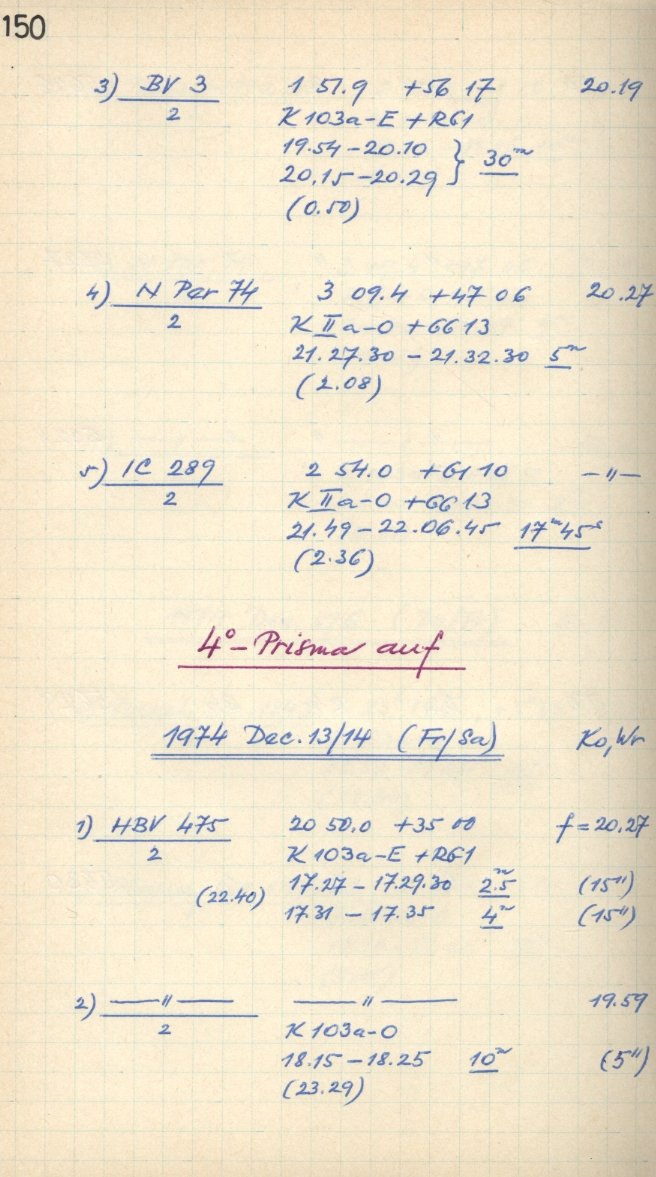 150
3) BV 3 1 57.9 +56 17 20.19
2 K 103a-E + RG1
19.54 - 20.10 } 30m
20.15 - 20.29
(0.50)
4) N Per 74 3 09.4 +47 06 20.27
2 K IIa-O + GG13
21.27.30 - 21.32.30 5m
(2.08)
5) IC 289 2 54.0 +61 10 -"-
2 K IIa-O + GG13
21.49 - 22.06.45 17m45s
(2.36)
4°-Prisma auf
1974 Dec. 13/14 (Fr/Sa) Ko, Wr
1) HBV 475 20 50.0 +35 00 f = 20.27
2 K 103a-E + RG1
(22.40) 17.27 - 17.29.30 2.5m (15")
17.31 - 17.35 4m (15")
2) -"- -"- 19.59
2 K 103a-O
18.15 - 18.25 10m (5")
(23.29)